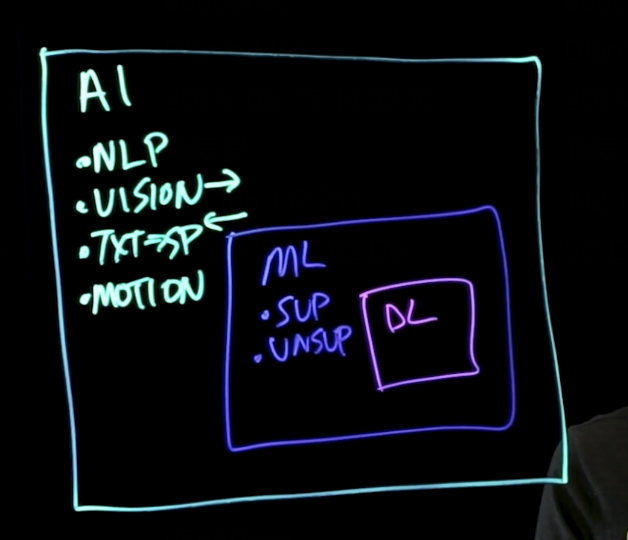 AI
•NLP
•VISION→
←
•TXT⇒SP
•MOTION
ML
•SUP
•UNSUP
DL